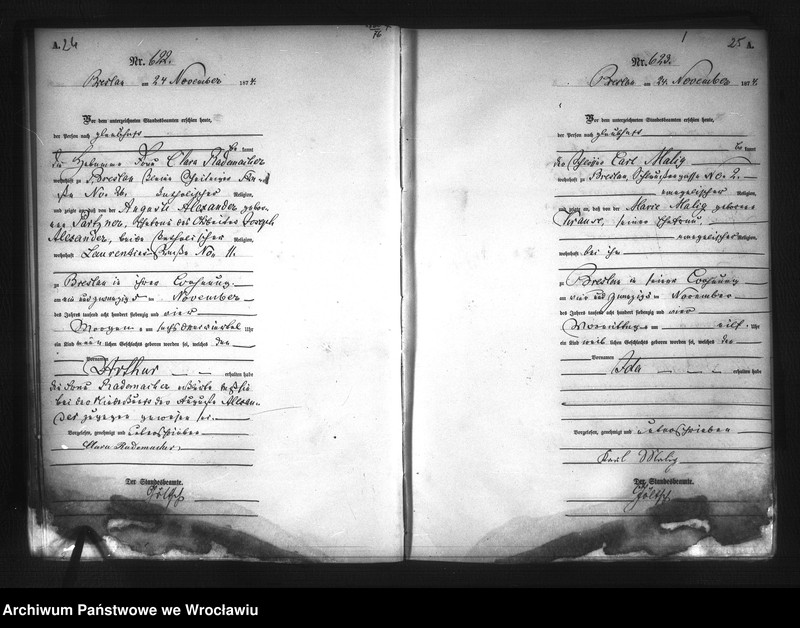 A. 24
Nr. 622.
Breslau am 24 November 1874.
Vor dem unterzeichneten Standesbeamten erschien heute,
der Person nach
kannt
die Hebamme Frau Clara Rademacher
wohnhaft zu Breslau
No. 26, katholischer Religion,
und zeigte an, daß von der Auguste Alexander gebor-
nen Ehefrau des Arbeiters Joseph
Alexander, beide katholischer Religion,
wohnhaft Laurentius Straße No. 11.
zu Breslau in ihrer Wohnung
am ein und zwanzigsten November
des Jahres tausend acht hundert siebenzig und vier
Morgens um Uhr
ein Kind männlichen Geschlechts geboren worden sei, welches den
Vornamen
Arthur erhalten habe
die Frau Rademacher erklärte daß sie
bei der Niederkunft der Auguste Alexan-
der zugegen gewesen sei.
Vorgelesen, genehmigt und unterschrieben
Clara Rademacher
Der Standesbeamte.
25 A.
Nr. 623.
Breslau am 24. November 1874.
Vor dem unterzeichneten Standesbeamten erschien heute,
der Person nach
kannt
der Carl Malig
wohnhaft zu Breslau, No. 2.
evangelischer Religion,
und zeigte an, daß von der Marie Malig geborenen
Krause, seiner Ehefrau,
evangelischer Religion,
wohnhaft bei ihm
zu Breslau in seiner Wohnung
am vier und zwanzigsten November
des Jahres tausend acht hundert siebenzig und vier
Vormittags um elf Uhr
ein Kind weiblichen Geschlechts geboren worden sei, welches den
Vornamen
Ida erhalten habe
Vorgelesen, genehmigt und unterschrieben
Karl Malig
Der Standesbeamte.
Archiwum Państwowe we Wrocławiu